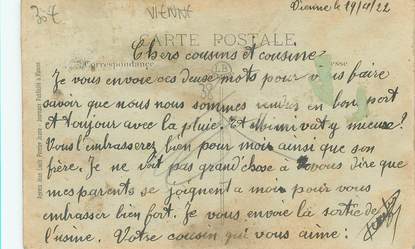 30€
VIENNE
Vienne le 19/4/22
CARTE POSTALE
Correspondance
Chers cousins et cousine
Je vous envoie ces deuse mots pour vous faire
savoir que nous nous sommes rendus en bon port
et toujour avec la pluie. Et Mimi vat y mieuse?
Vous l'embrasserez bien pour moi ainsi que son
frère. Je ne voit pas grand'chose à vous dire que
mes parents se joignent a moi pour vous
embrasser bien fort. Je vous envoie la sortie de
l'usine. Votre cousin qui vous aime: